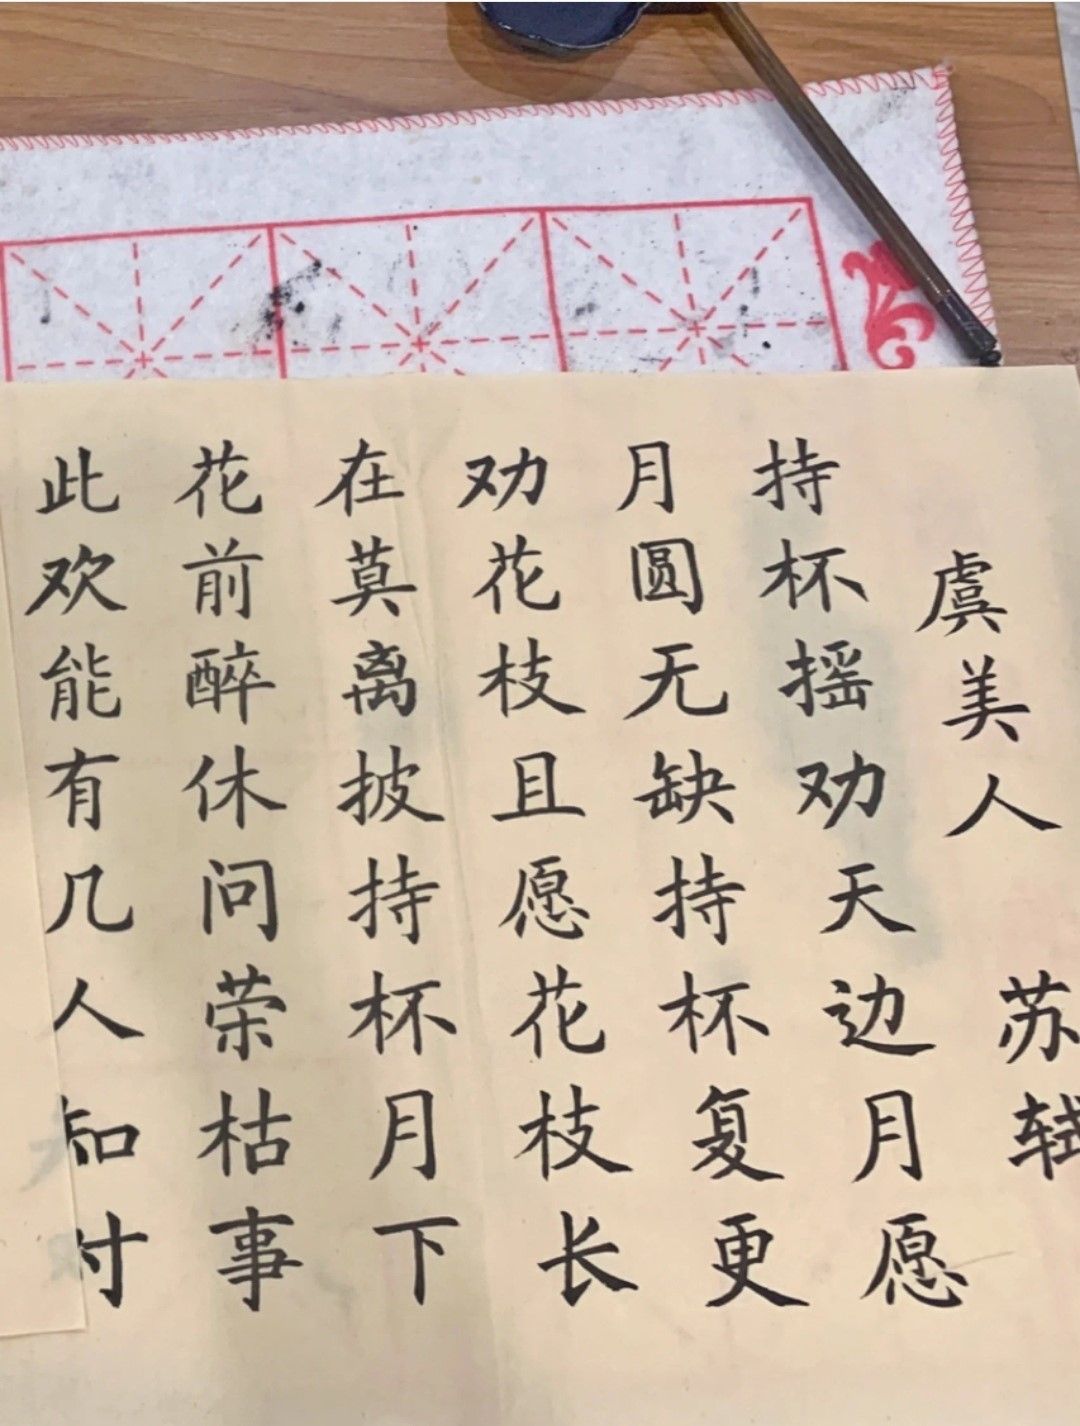 虞美人
苏轼
持杯摇劝天边月愿
月圆无缺持杯复更
劝花枝且愿花枝长
在莫离披持杯月下
花前醉休问荣枯事
此欢能有几人知